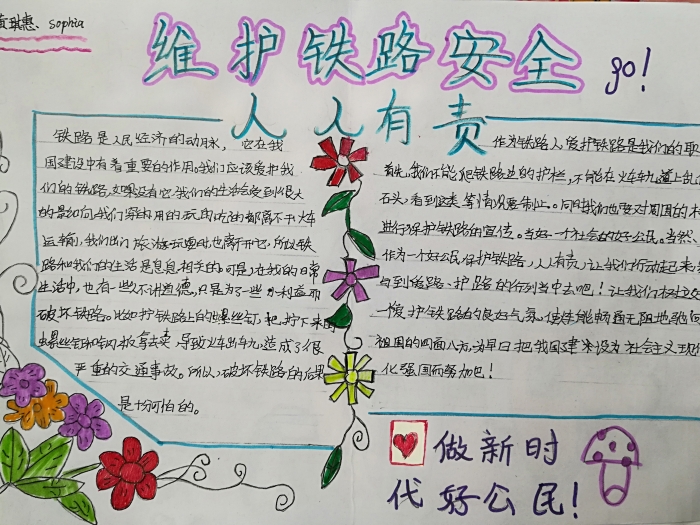 琪惠、sophia
维护铁路安全 go!
人人有责
铁路是人民经济的动脉，它在我
国建设中有着重要的作用。我们应该爱护我
们的铁路，如果没有它，我们的生活会受到很大
的影响，我们穿和用的玩的吃的都离不开火车
运输，我们出门旅游玩耍也离开它，所以铁
路和我们的生活是息息相关的。可是，在我的日常
生活中，也有一些人不讲道德，只是为了一些小利益而
破坏铁路。比如护铁路上的螺丝钉，把拧下来
螺丝钉拿去卖，导致火车出轨，造成了很
严重的交通事故。所以，破坏铁路的后果
是十分可怕的。
作为铁路人爱护铁路是我们的职
首先，我们不能爬铁路边的护栏，不能在火车轨道上
石头，看到这类事情要制止。同时我们也要对周围的
进行保护铁路的宣传。当好一个社会的好公民。当然、
作为一个好公民，保护铁路，人人有责，让我们行动起来
与到给路、护路的行列当中去吧！让我们树立
一爱护铁路的良好气氛，使铁能畅通无阻地驰向
祖国的四面八方，为早日把我国建设为社会主义现
化强国而努力吧！
做新时
代好公民！